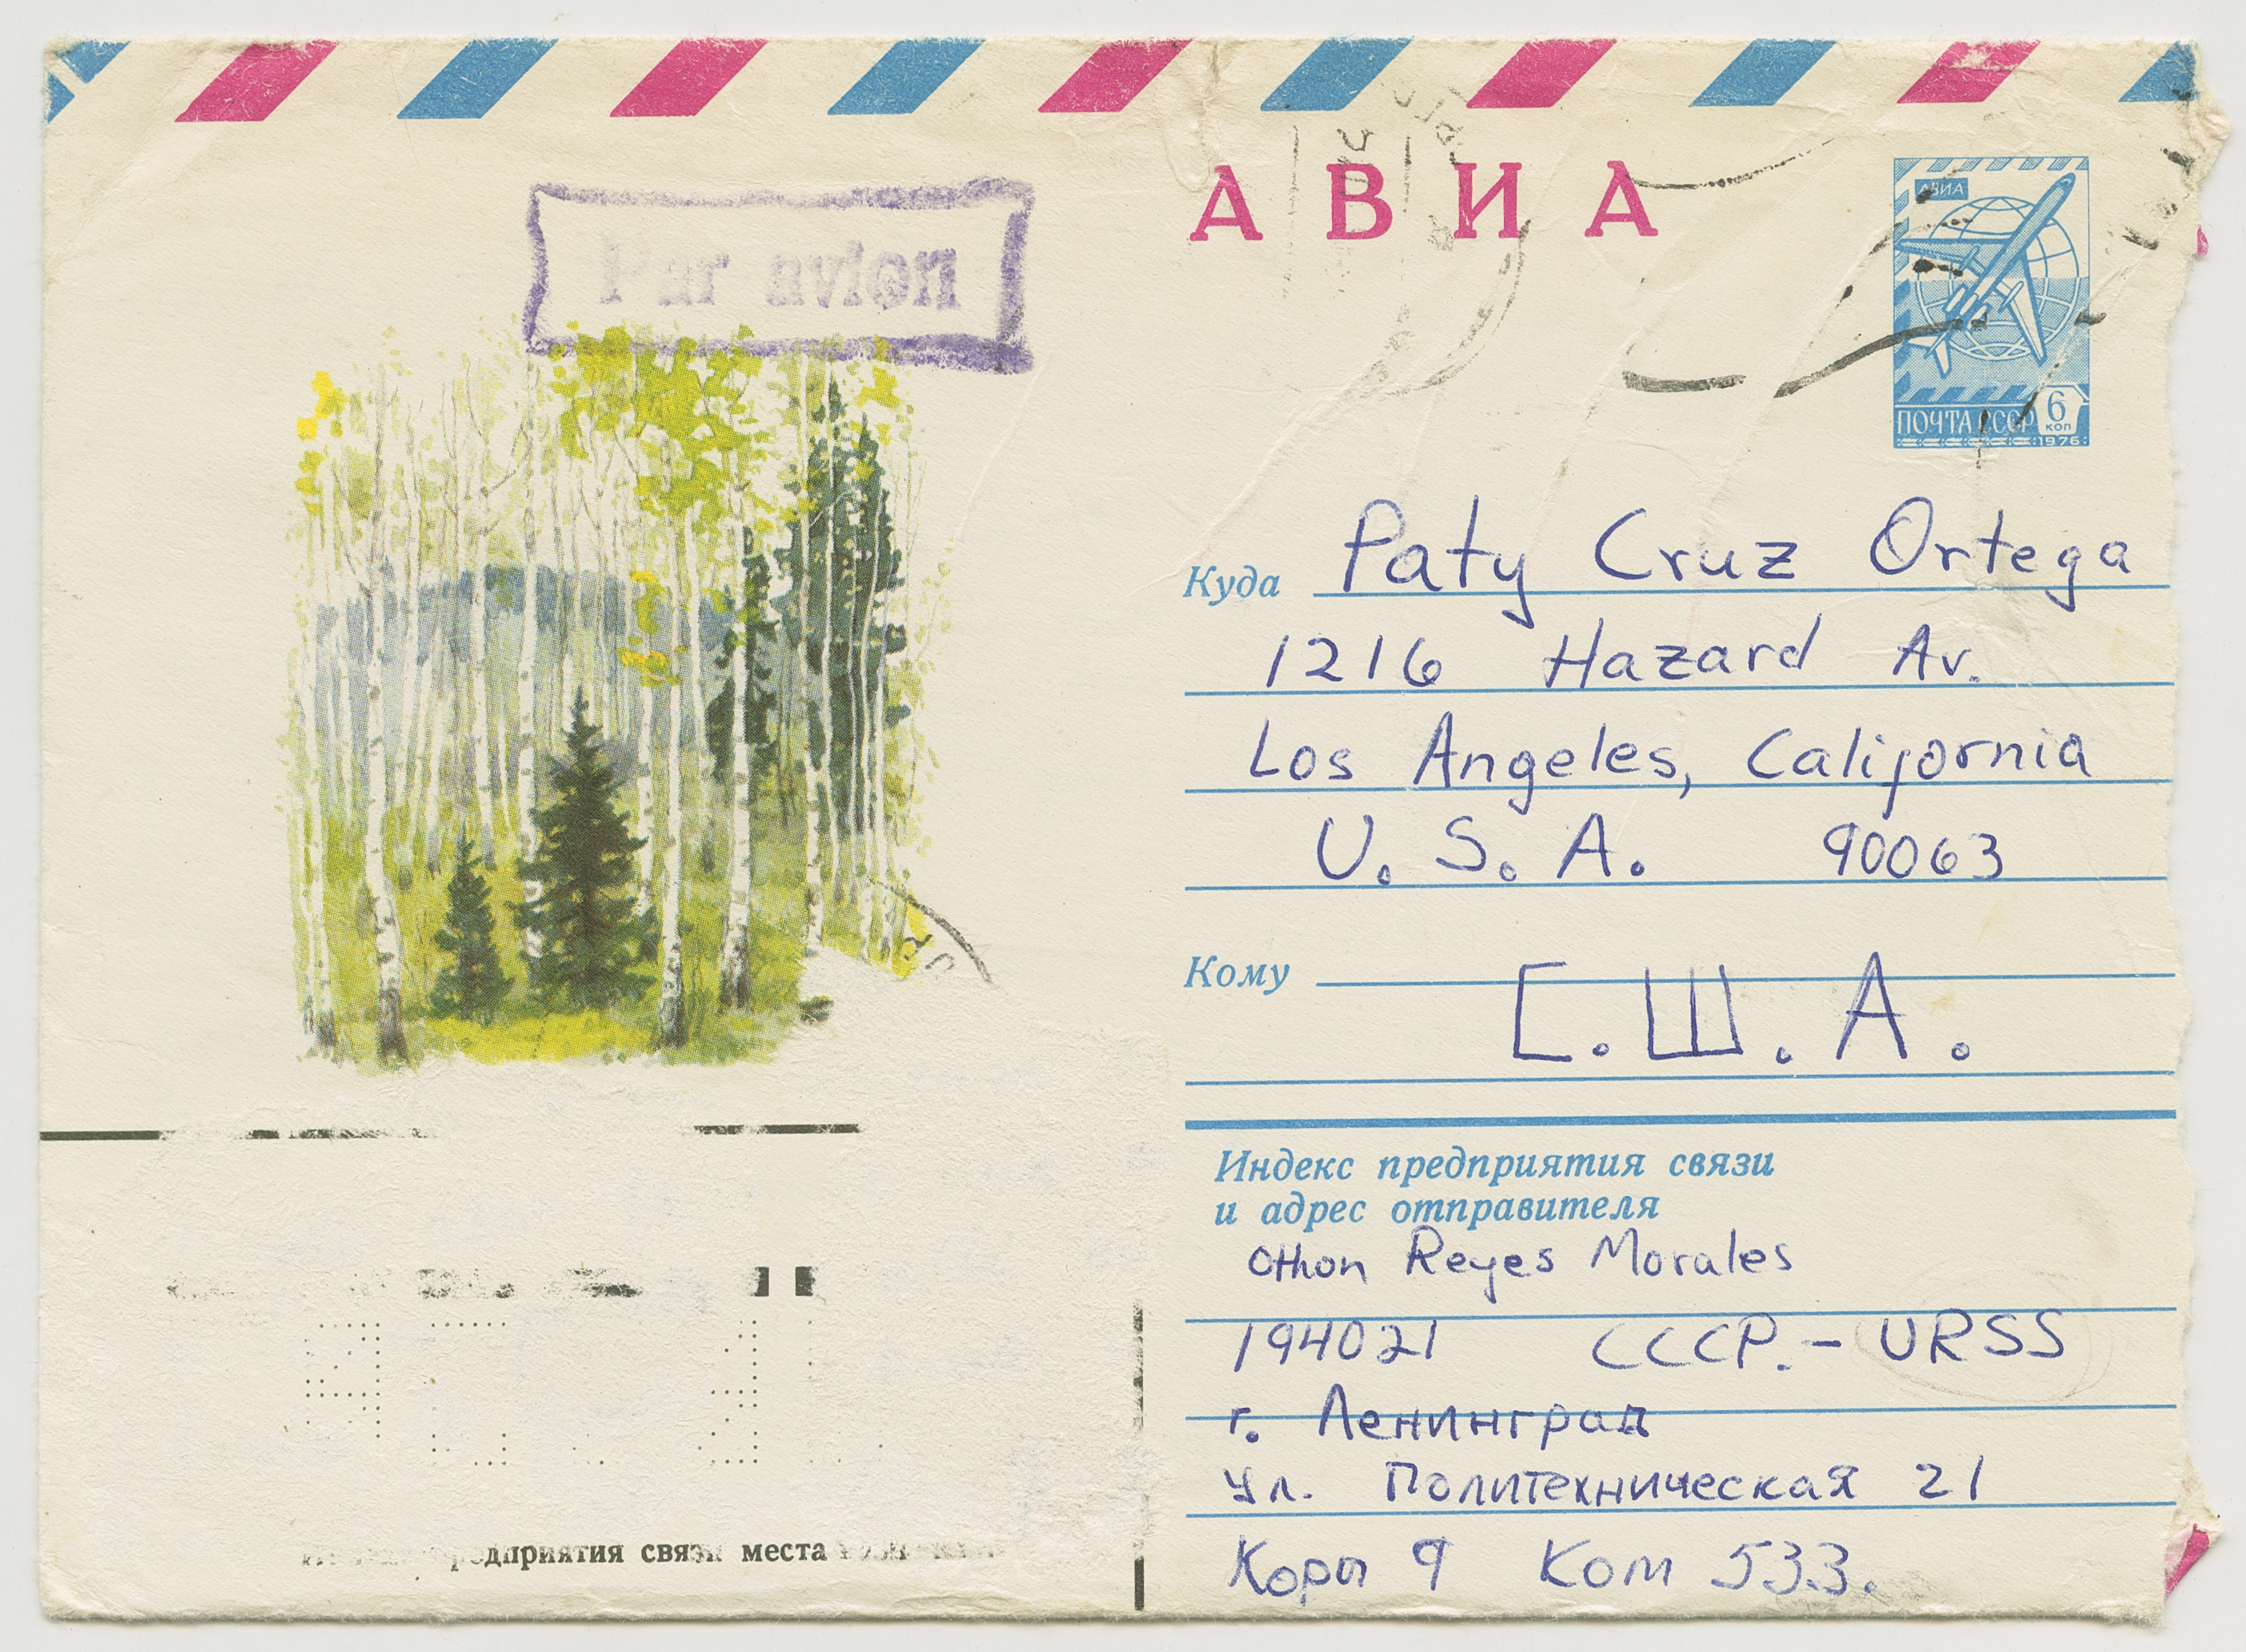 Par avion
АВИА
АВИА
ПОЧТА СССР 6 коп
1976
Куда Paty Cruz Ortega
1216 Hazard Av.
Los Angeles, California
U. S. A. 90063
Кому
С. Ш. А.
Индекс предприятия связи
и адрес отправителя
Othon Reyes Morales
194021 СССР.- URSS
г. Ленинград
ул. Политехническая 21
Корп 9 Ком 533.
предприятия связи места